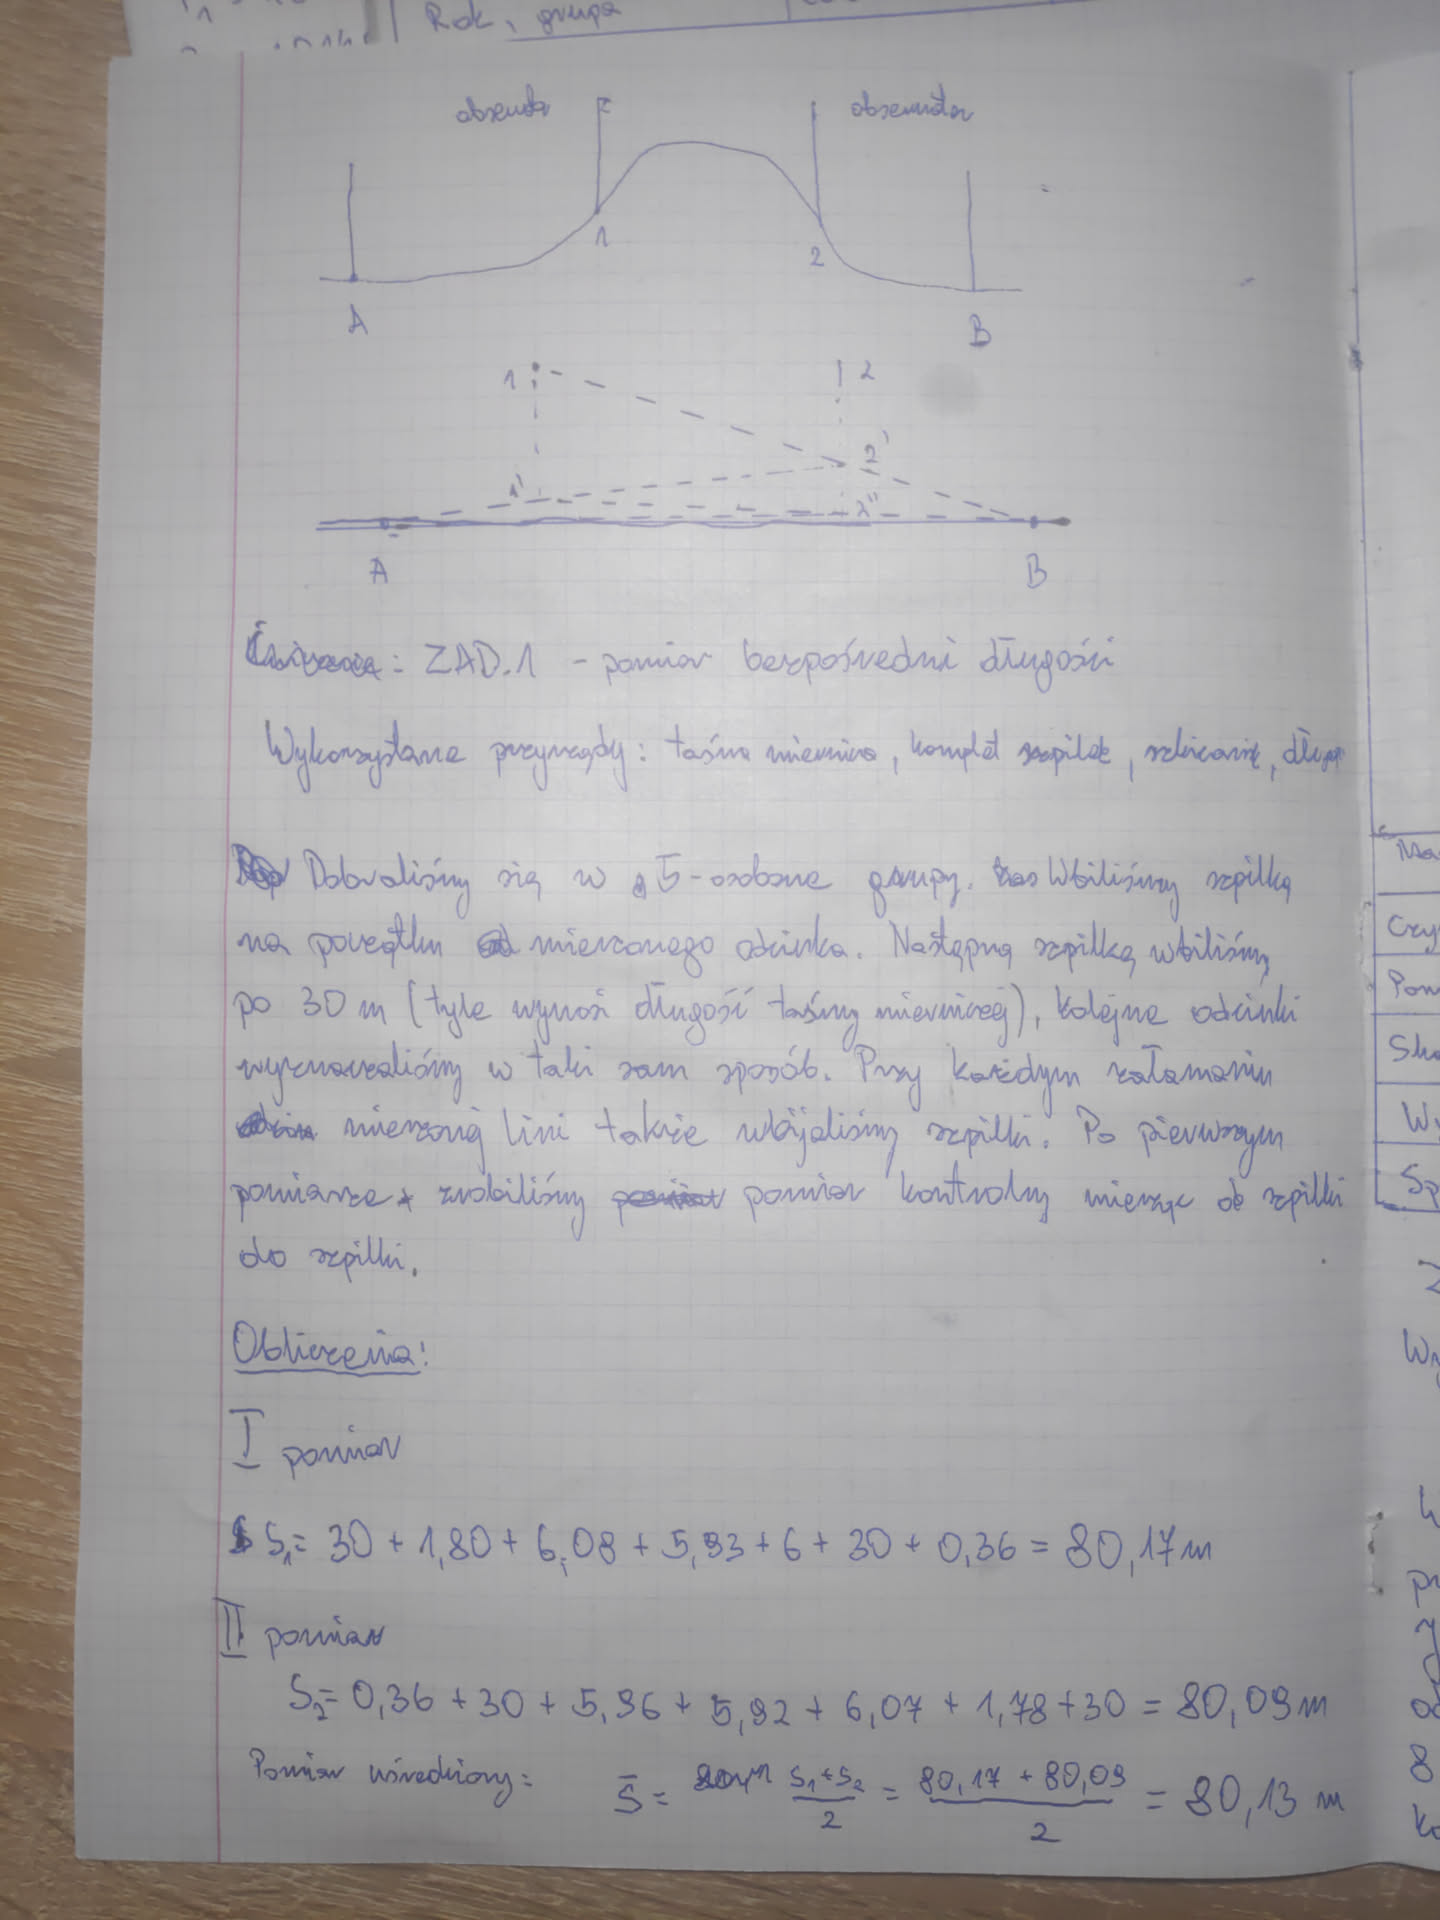 Rok, grupa
obserwator
1
2
A
B
1
2
2'
1'
2''
A
B
Ćwiczenie: ZAD.1 - pomiar bezpośredni długości
Wykorzystane przyrządy: taśma miernicza, komplet szpilek,
Dobraliśmy się w 5-osobone grupy. Wbiliśmy szpilkę
na początku mierzonego odcinka. Następną szpilkę wbiliśmy
po 30 m (tyle wynosi długość taśmy mierniczej), kolejne odcinki
wyznaczaliśmy w taki sam sposób. Przy każdym załamaniu
mierzonej lini także wbijaliśmy szpilki. Po pierwszym
pomiarze zrobiliśmy pomiar kontrolny mierząc od szpilki
do szpilki.
Obliczenia:
I pomiar
S₁= 30 + 1,80 + 6,08 + 5,93 + 6 + 30 + 0,36 = 80,17m
II pomiar
S₂= 0,36 + 30 + 5,96 + 5,92 + 6,07 + 1,78 + 30 = 80,09m
Pomiar uśredniony: S̄ = (S₁+S₂)/2 = (80,17 + 80,09)/2 = 80,13 m